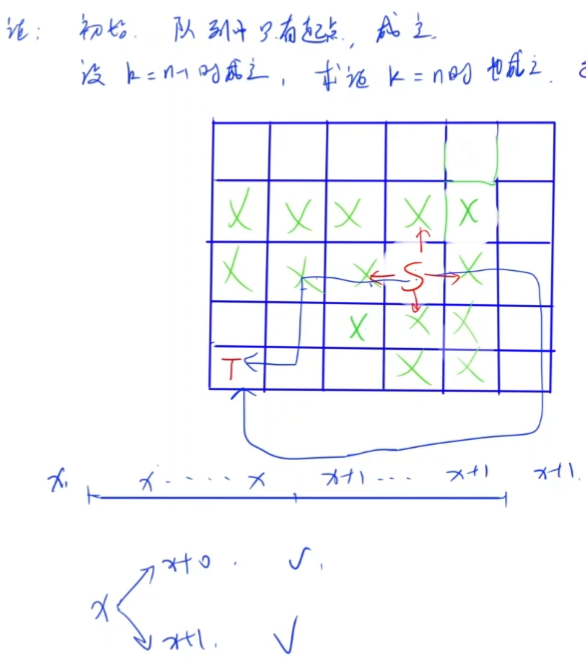 证: 初始. 队列中只有起点, 成立.
设 k=n-1时成立, 求证 k=n时也成立.
X X X X X
X X X S X
X X X
T X X
x. x ····· x x+1 ··· x+1 x+1.
x+0. √.
x
x+1. √